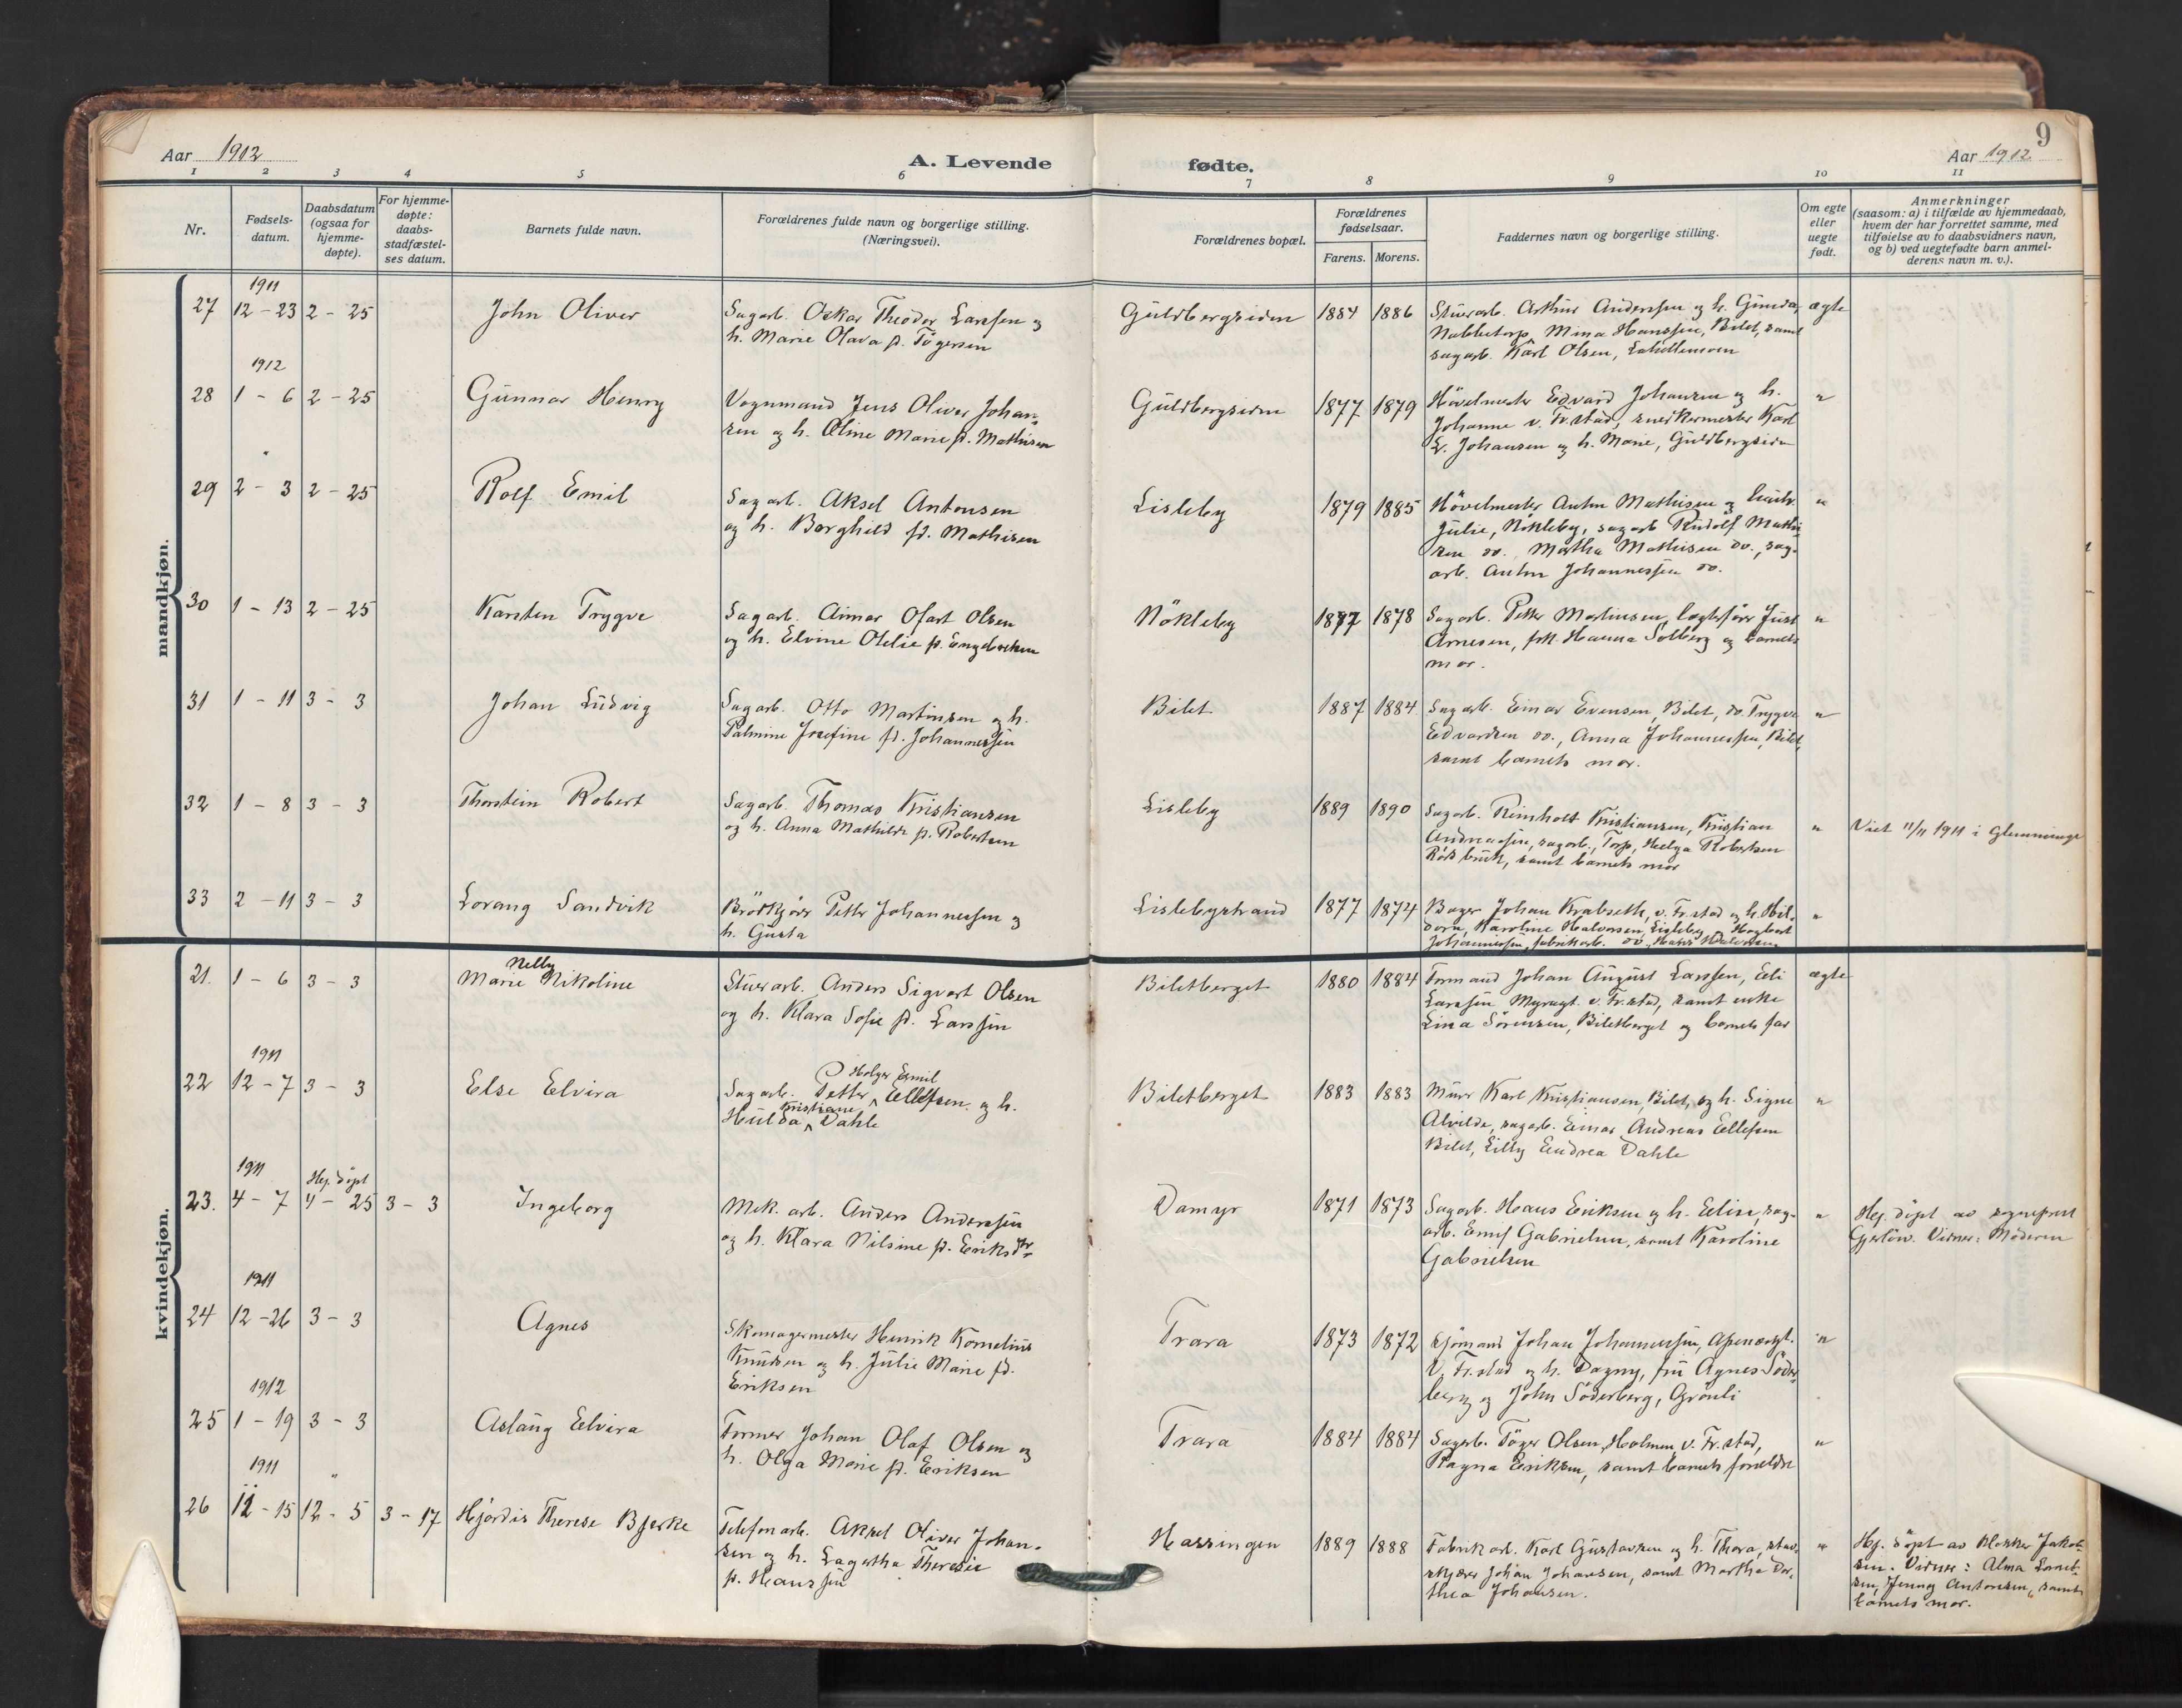 9
Aar 1912
A. Levende fødte.
Aar 1912
1 2 3 4 5 6 7 8 9 10 11
Nr.
Fødsels-
datum.
Daabsdatum
(ogsaa for
hjemme-
døpte).
For hjemme-
døpte:
daabs-
stadfæstel-
ses datum.
Barnets fulde navn.
Forældrenes fulde navn og borgerlige stilling.
(Næringsvei).
Forældrenes bopæl.
Forældrenes
fødselsaar.
Farens. Morens.
Faddernes navn og borgerlige stilling.
Om egte
eller
uegte
født.
Anmerkninger
(saasom: a) i tilfælde av hjemmedaab,
hvem der har forrettet samme, med
tilføielse av to daabsvidners navn,
og b) ved uegtefødte barn anmel-
derens navn m. v.).
mandkjøn.
1911
27 12-23 2-25
John Oliver
Sagarb. Oskar Theodor Larssen og
h. Marie Olava f. Tögersen
Guldbergsiden
1884 1886
Stuerarb. Arthur Anderssen og h. Gunda,
Nabbetorp, Mina Hanssen, Bilet, samt
sagarb. Karl Olsen,
ægte
1912
28 1-6 2-25
Gunnar Henry
Vognmand Jens Oliver Johan-
sen og h. Oline Marie f. Mathisen
Guldbergsiden
1877 1879
Hövelmester Edvard Johansen og h.
Johanne v. Fr.stad, snedkermester Karl
L. Johansen og h. Marie, Guldbergsiden
"
29 2-3 2-25
Rolf Emil
Sagarb. Aksel Antonsen
og h. Borghild f. Mathisen
Lisleby
1879 1885
Hövelmester Anton Mathisen og hustr.
Julie, Nökleby, sagarb Rudolf Mathi-
sen do., Martha Mathisen do., sag-
arb. Anton Johannessen do.
"
30 1-13 2-25
Karsten Trygve
Sagarb. Aimar Ofart Olsen
og h. Elvine Otelie f. Engebretsen
Nökleby
1887 1878
Sagarb. Petter Martinsen, Just
Arnesen, frk. Hanna Solberg og barnets
mor.
"
31 1-11 3-3
Johan Ludvig
Sagarb. Otto Martinsen og h.
Palmine Josefine f. Johannessen
Bilet
1887 1884
Sagarb. Einar Evensen, Bilet, do. Trygve
Edvardsen do., Anna Johannessen, Bilet,
samt barnets mor.
"
32 1-8 3-3
Thorstein Robert
Sagarb. Thomas Kristiansen
og h. Anna Mathilde f. Robertsen
Lisleby
1889 1890
Sagarb. Reinholt Kristiansen, Kristian
Andreassen, sagarb., Torp, Helga Robertsen
samt barnets mor
"
Viet 11/11 1911 i Glemminge
33 2-11 3-3
Lorang Sandvik
Brödkjörer Petter Johannessen og
h. Gusta
Lislebystrand
1877 1874
Bager Johan Krabseth, v. Fr.stad og h. Hil-
dora, Karoline Halvorsen, Lisleby, Hagbart
Johannessen, fabrikarb. do. Hans Halvorsen
"
kvindekjøn.
21. 1-6 3-3
Nelly
Marie Nikoline
Stuerarb. Anders Sigvart Olsen
og h. Klara Sofie f. Larssen
Biletberget
1880 1884
Formand Johan August Larssen, Eli
Larssen Myragt. v. Fr.stad, samt enke
Lina Sörensen, Biletberget og barnets far
ægte
1911
22 12-7 3-3
Else Elvira
Holger Emil
Sagarb. Petter Ellefsen og h.
Kristiane
Hulda Dahle
Biletberget
1883 1883
Murer Karl Kristiansen, Bilet, og h. Signe
Alvilde, sagarb. Einar Andreas Ellefsen
Bilet, Lilly Endrea Dahle
"
1911
Hj. döpt
23. 4-7 4-25 3-3
Ingeborg
Mek. arb. Anders Anderssen
og h. Klara Nilsine f. Eriksdtr
Damyr
1871 1873
Sagarb. Hans Eriksen og h. Eline, sag-
arb. Emil Gabrielsen, samt Karoline
Gabrielsen
"
Hj. döpt av sogneprest
Gjerlöw. Vidner: Moderen
1911
24 12-26 3-3
Agnes
Skomagermester Henrik Kornelius
Knudsen og h. Julie Marie f.
Eriksen
Trara
1873 1872
Sjömand Johan Johannessen, Apenesgt.
v. Fr.stad og h. Dagny, fru Agnes Söder-
berg og John Söderberg, Grönli
"
1912
25 1-19 3-3
Aslaug Elvira
Former Johan Olaf Olsen og
h. Olga Marie f. Eriksen
Trara
1884 1884
Sagarb. Töger Olsen, Holmen v. Fr.stad,
Ragna Eriksen, samt barnets forældre
"
1911 "
26 11-15 12-5 3-17
Hjördis Therese Bjerke
Telefonarb. Aksel Oliver Johan-
sen og h. Lagertha Theresie
f. Hanssen
Hassingen
1889 1888
Fabrikarb. Karl Gustavsen og h. Thora, stav-
skjærer Johan Johansen, samt Martha Dor-
thea Johansen.
"
Hj. döpt av klokker Jakob-
sen. Vidner: Alma
Jenny Antonsen, samt
barnets mor.